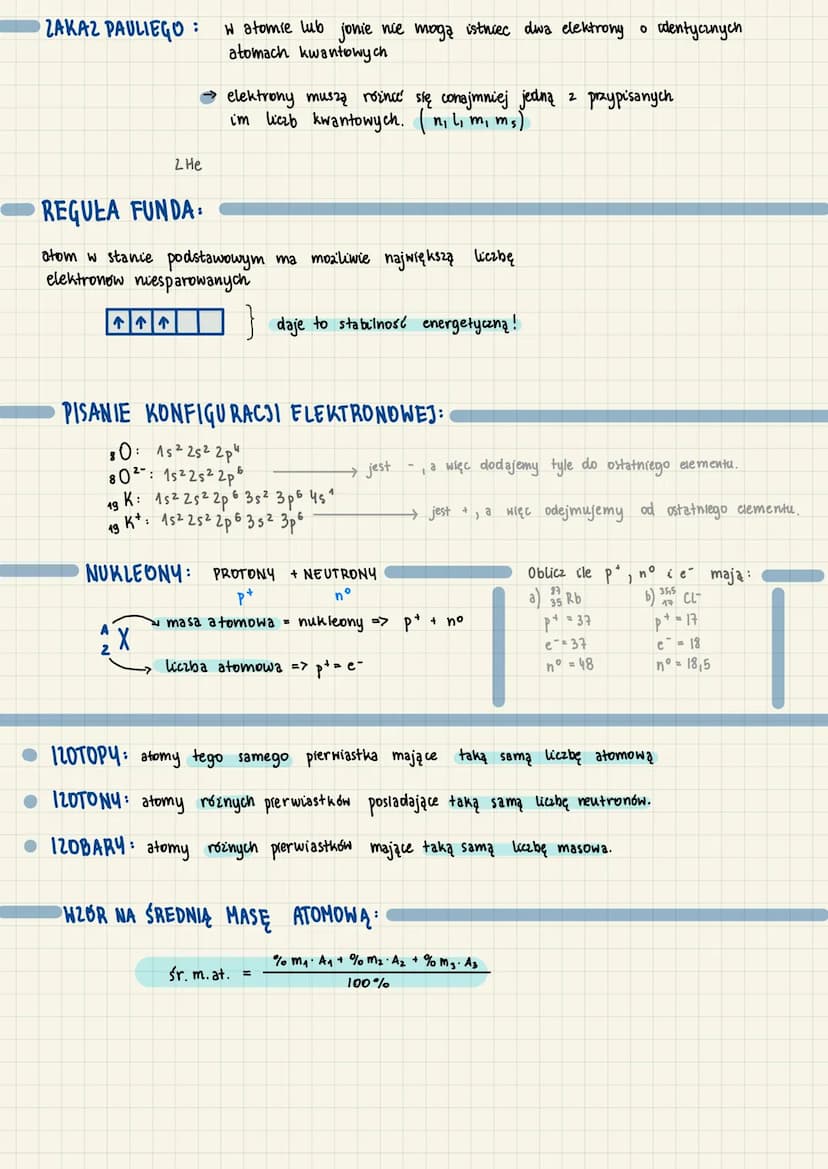 ZAKAZ PAULIEGO : w atomie lub jonie nie mogą istniec dwa elektrony o identycznych
atomach kwantowych
→ elektrony muszą różnić się conajmniej jedną z przypisanych
im liczb kwantowych. (n, l, m, ms)
2He
REGUŁA FUNDA:
atom w stanie podstawowym ma możliwie największą liczbę
elektronów niesparowanych
↑ ↑ ↑ } daje to stabilność energetyczną!
PISANIE KONFIGURACJI ELEKTRONOWEJ:
₈O: 1s² 2s² 2p⁴
₈O²⁻: 1s² 2s² 2p⁶ → jest - , a więc dodajemy tyle do ostatniego elementu.
₁₉K: 1s² 2s² 2p⁶ 3s² 3p⁶ 4s¹
₁₉K⁺: 1s² 2s² 2p⁶ 3s² 3p⁶ → jest + , a więc odejmujemy od ostatniego elementu.
NUKLEONY: PROTONY + NEUTRONY
p⁺ n⁰
A masa atomowa = nukleony => p⁺ + n⁰
X
Z liczba atomowa => p⁺ = e⁻
Oblicz ile p⁺, n⁰ i e⁻ mają:
a) ³⁷₃₅ Rb b) ³⁵·⁵₁₇ Cl⁻
p⁺ = 37 p⁺ = 17
e⁻ = 37 e⁻ = 18
n⁰ = 48 n⁰ = 18,5
IZOTOPY: atomy tego samego pierwiastka mające taką samą liczbę atomową
IZOTONY: atomy różnych pierwiastków posiadające taką samą liczbę neutronów.
IZOBARY: atomy różnych pierwiastków mające taką samą liczbę masowa.
WZÓR NA ŚREDNIĄ MASĘ ATOMOWĄ:
% m₁ · A₁ + % m₂ · A₂ + % m₃ · A₃
śr. m. at. =
100%